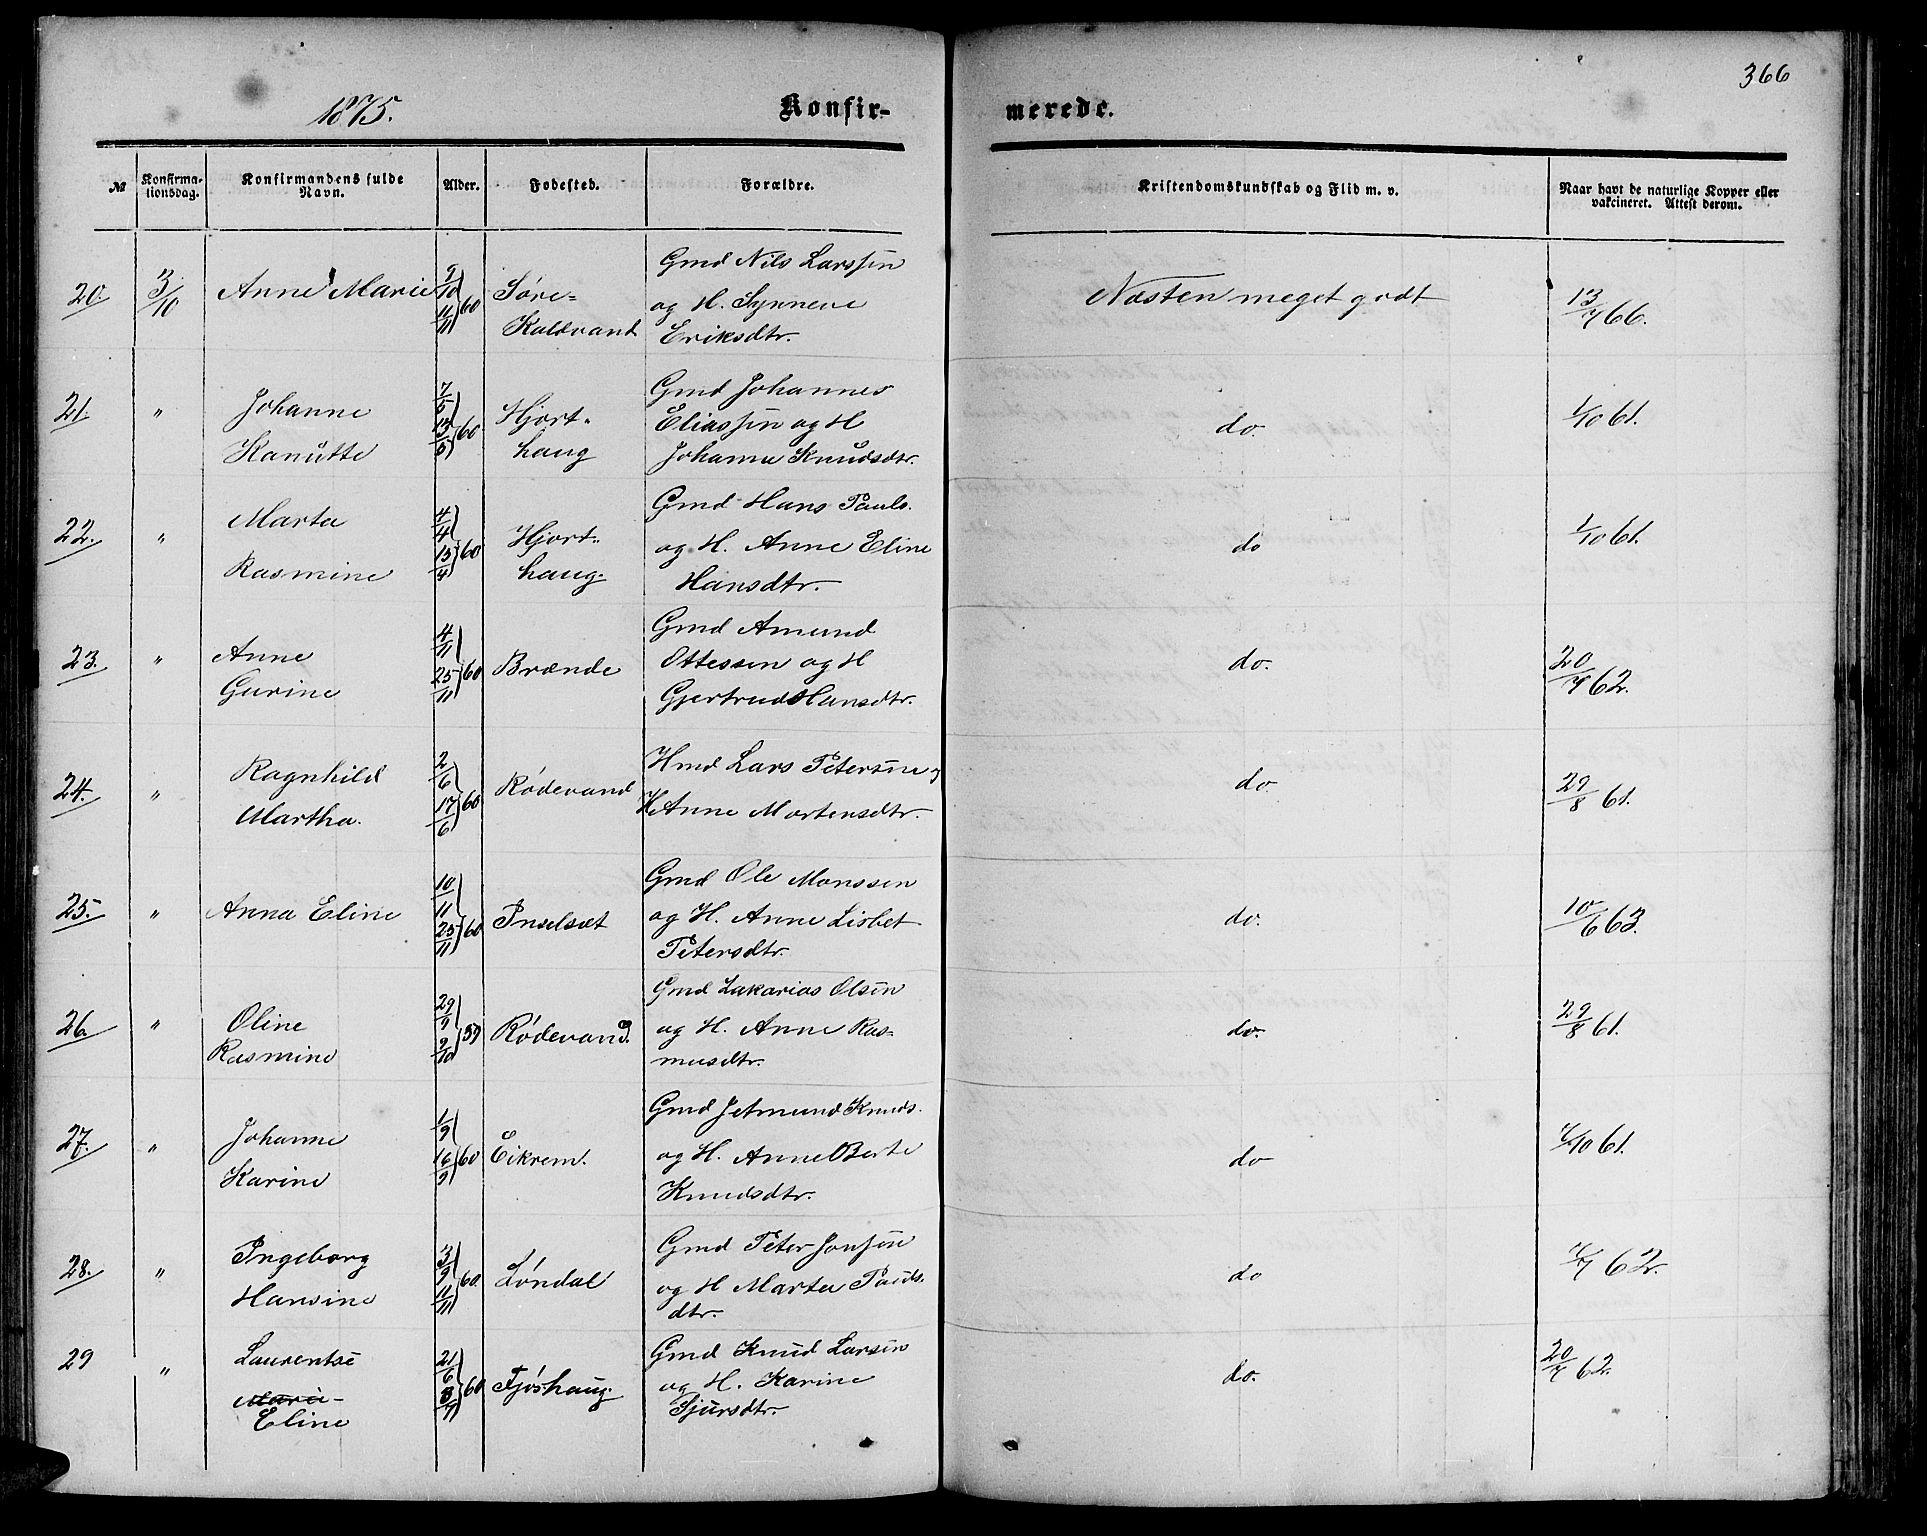 366
1875.
Konfir-
merede.
№
Konfirma-
tionsdag.
Konfirmandens fulde
Navn.
Alder.
Fødested.
Forældre.
Kristendomskundskab og Flid m. v.
Naar havt de naturlige Kopper eller
vakcineret. Attest derom.
20. 3/10 Anne Marie 9/10 11/11 60 Søre-
Kaldvand
Gmd Nils Larssen
og H. Synneve
Eriksdtr.
Næsten meget godt 13/7 66.
21. " Johanne
Kanutte
7/5 13/5 60 Hjort-
haug
Gmd Johannes
Eliassen og H
Johanne Knudsdtr.
do. 1/10 61.
22. " Marta
Rasmine
4/4 15/4 60 Hjort-
haug.
Gmd Hans Pauls.
og H. Anne Eline
Hansdtr.
do 1/10 61.
23. " Anne
Gurine
4/11 25/11 60 Brænde
Gmd Amund
Ottessen og H
Gjertrud Hansdtr.
do. 20/7 62.
24. " Ragnhild
Martha.
2/6 17/6 60 Rødevand
Hmd Lars Petersen og
H Anne Mortensdtr.
do. 29/8 61.
25. " Anna Eline 10/11 25/11 60 Inselsæt
Gmd Ole Monssen
og H. Anne Lisbet
Petersdtr.
do. 10/6 63.
26. " Oline
Rasmine
29/9 9/10 59 Rødevand.
Gmd Zakarias Olsen
og H. Anne Ras-
musdtr.
do. 29/8 61.
27. " Johanne
Karine
1/9 16/9 60 Eikrem.
Gmd Jetmund Knuds.
og H. Anne Berte
Knudsdtr.
do 7/10 61.
28. " Ingeborg
Hansine
3/9 11/11 60. Løndal
Gmd Peter Jonsen
og H Marta Pauls.
dtr.
do 7/7 62.
29 " Laurentse
Marie-
Eline
21/6 8/7 60 Fjøshaug.
Gmd Knud Larsen
og H. Karine
Sjursdtr.
do. 20/7 62.